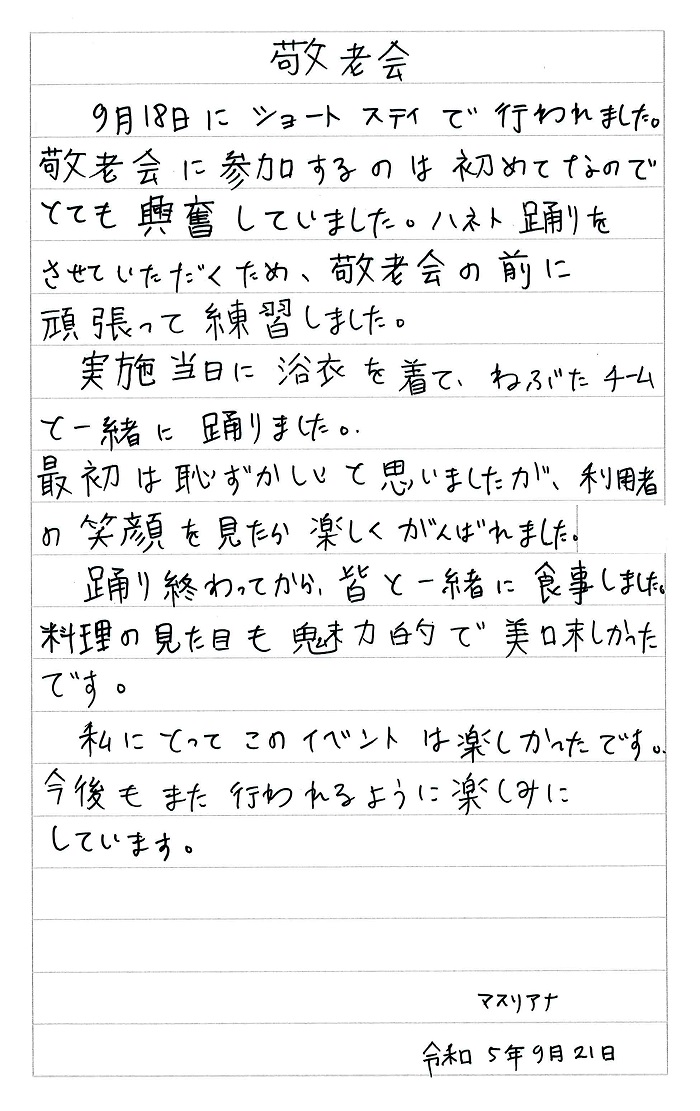 敬老会
9月18日にショートステイで行われました。
敬老会に参加するのは初めてなので
とても興奮していました。ハネト踊りを
させていただくため、敬老会の前に
頑張って練習しました。
実施当日に浴衣を着て、ねぶたチーム
と一緒に踊りました。
最初は恥ずかしいと思いましたが、利用者
の笑顔を見たら楽しくがんばれました。
踊り終わってから、皆と一緒に食事しました。
料理の見た目も魅力的で美味しかった
です。
私にとってこのイベントは楽しかったです。
今後もまた行われるように楽しみに
しています。
マスリアナ
令和5年9月21日